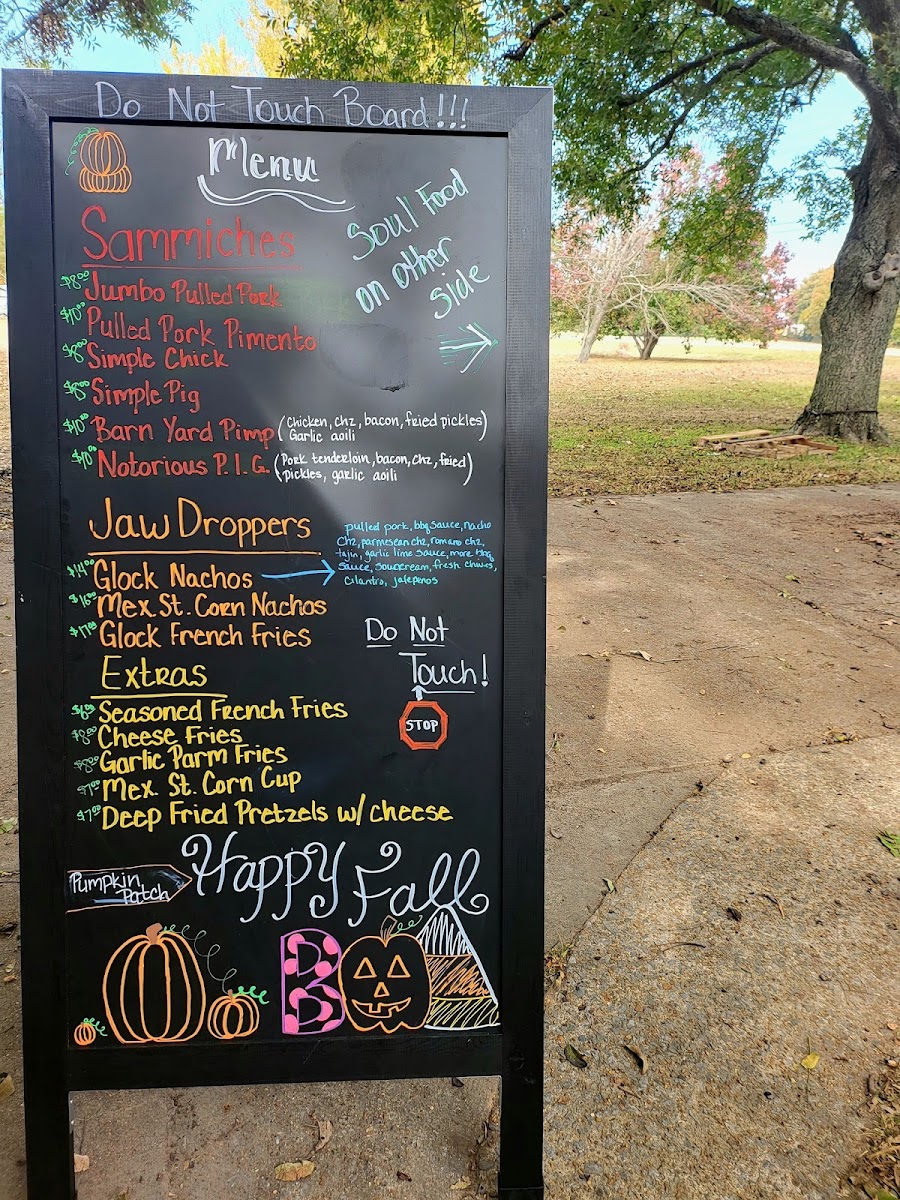 Do Not Touch Board!!!
Menu
Soul Food
on other
side
Sammiches
$8.00 Jumbo Pulled Pork
$10.00 Pulled Pork Pimento
$8.00 Simple Chick
$8.00 Simple Pig
$10.00 Barn Yard Pimp (Chicken, chz, bacon, fried pickles)
Garlic aoili
$10.00 Notorious P.I.G. (Pork tenderloin, bacon, chz, fried)
pickles, garlic aoili
Jaw Droppers
pulled pork, bbq sauce, nacho
chz, parmesean chz, romano chz,
tajin, garlic lime sauce, more bbq
sauce, sourcream, fresh chives,
cilantro, jalepenos
$14.00 Glock Nachos
$16.00 Mex. St. Corn Nachos
$17.00 Glock French Fries
Do Not
Touch!
STOP
Extras
Seasoned French Fries
$8.00 Cheese Fries
$8.00 Garlic Parm Fries
$7.00 Mex. St. Corn Cup
$7.00 Deep Fried Pretzels w/ cheese
Happy Fall
Pumpkin
Patch
BOA